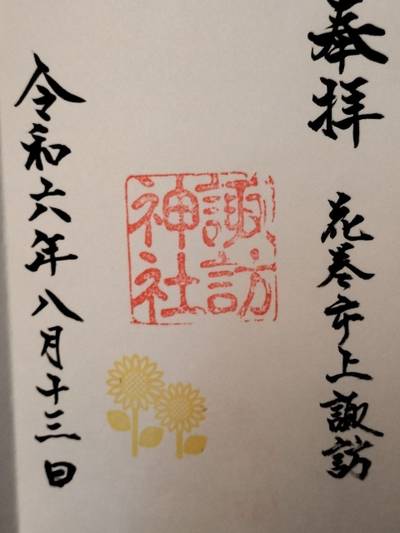 奉拝
花巻市上諏訪
諏訪
神社
令和六年八月十三日